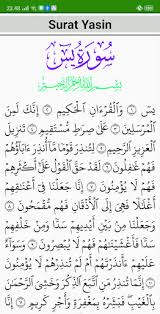 23.48
Surat Yasin
سُورَة يسٓ
بِسْمِ اللَّهِ الرَّحْمَٰنِ الرَّحِيمِ
يسٓ ۝ وَالْقُرْءَانِ الْحَكِيمِ ۝ إِنَّكَ لَمِنَ
الْمُرْسَلِينَ ۝ عَلَىٰ صِرَاطٍ مُسْتَقِيمٍ ۝ تَنْزِيلَ
الْعَزِيزِ الرَّحِيمِ ۝ لِتُنْذِرَ قَوْمًا مَا أُنْذِرَ ءَابَاؤُهُمْ
فَهُمْ غَافِلُونَ ۝ لَقَدْ حَقَّ الْقَوْلُ عَلَىٰ أَكْثَرِهِمْ
فَهُمْ لَا يُؤْمِنُونَ ۝ إِنَّا جَعَلْنَا فِي أَعْنَاقِهِمْ
أَغْلَالًا فَهِيَ إِلَى الْأَذْقَانِ فَهُمْ مُقْمَحُونَ ۝
وَجَعَلْنَا مِنْ بَيْنِ أَيْدِيهِمْ سَدًّا وَمِنْ خَلْفِهِمْ
سَدًّا فَأَغْشَيْنَاهُمْ فَهُمْ لَا يُبْصِرُونَ ۝ وَسَوَاءٌ
عَلَيْهِمْ ءَأَنْذَرْتَهُمْ أَمْ لَمْ تُنْذِرْهُمْ لَا يُؤْمِنُونَ ۝
إِنَّمَا تُنْذِرُ مَنِ اتَّبَعَ الذِّكْرَ وَخَشِيَ الرَّحْمَٰنَ
بِالْغَيْبِ فَبَشِّرْهُ بِمَغْفِرَةٍ وَأَجْرٍ كَرِيمٍ ۝ إِنَّا